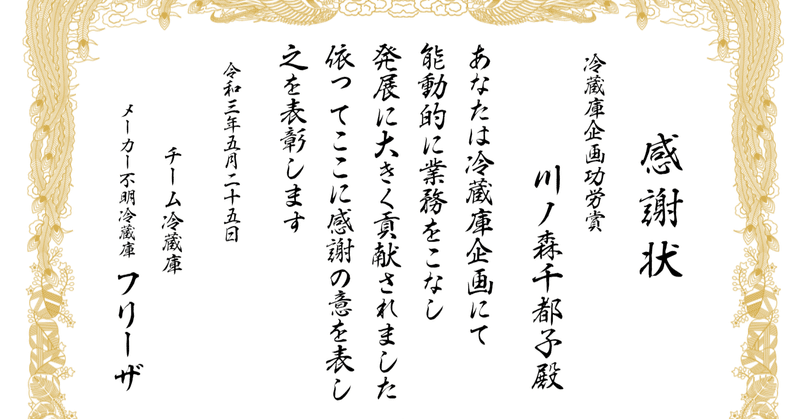 感謝状
冷蔵庫企画功労賞
川ノ森千都子殿
あなたは冷蔵庫企画にて
能動的に業務をこなし
発展に大きく貢献されました
依ってここに感謝の意を表し
之を表彰します
令和三年五月二十五日
チーム冷蔵庫
メーカー不明冷蔵庫 フリーザ